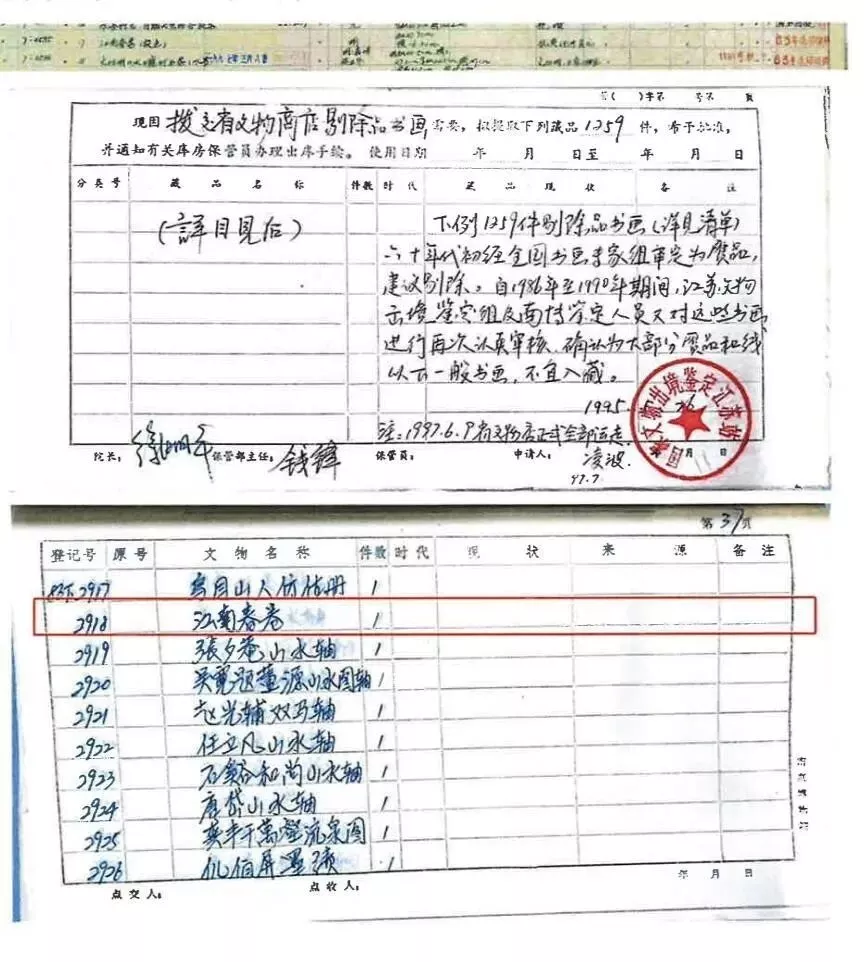 江南春卷
一九九七年三月八日
字( )字第 号第 页
现因 拨交省文物商店剔除品书画 需要,拟提取下列藏品 1259 件,希予批准,
并通知有关库房保管员办理出库手续。 使用日期 年 月 日至 年 月 日
分类号 藏品名称 件数 时代 藏品现状 备注
(详目见后)
下列1259件剔除品书画(详见清单)
六十年代初经全国书画专家组审定为赝品,
建议剔除。自1986年至1990年期间,江苏文物
出境鉴定组及南博鉴定人员又对这些书画
进行再次认真审核,确认为大部分赝品和线
以下一般书画,不宜入藏。
1995
注:1997.6.9省文物店正式全部运走
院长: 徐湖平 保管部主任: 钱锋 保管员: 申请人: 凌波 年 月 日
97.7.
国家文物出境鉴定江苏站
第37页
登记号 原号 文物名称 件数 时代 现状 来源 备注
2917 1
2918 江南春卷 1
2919 張夕菴山水轴 1
2920 吴寛题董源山水图轴 1
2921 赵光辅双马轴 1
2922 任立凡山水轴 1
2923 石谿和尚山水轴 1
2924 唐岱山水轴 1
2925 龚半千萬壑流泉图 1
2926 仇伯屏墨蹟 1
点交人: 点收人: 年 月 日